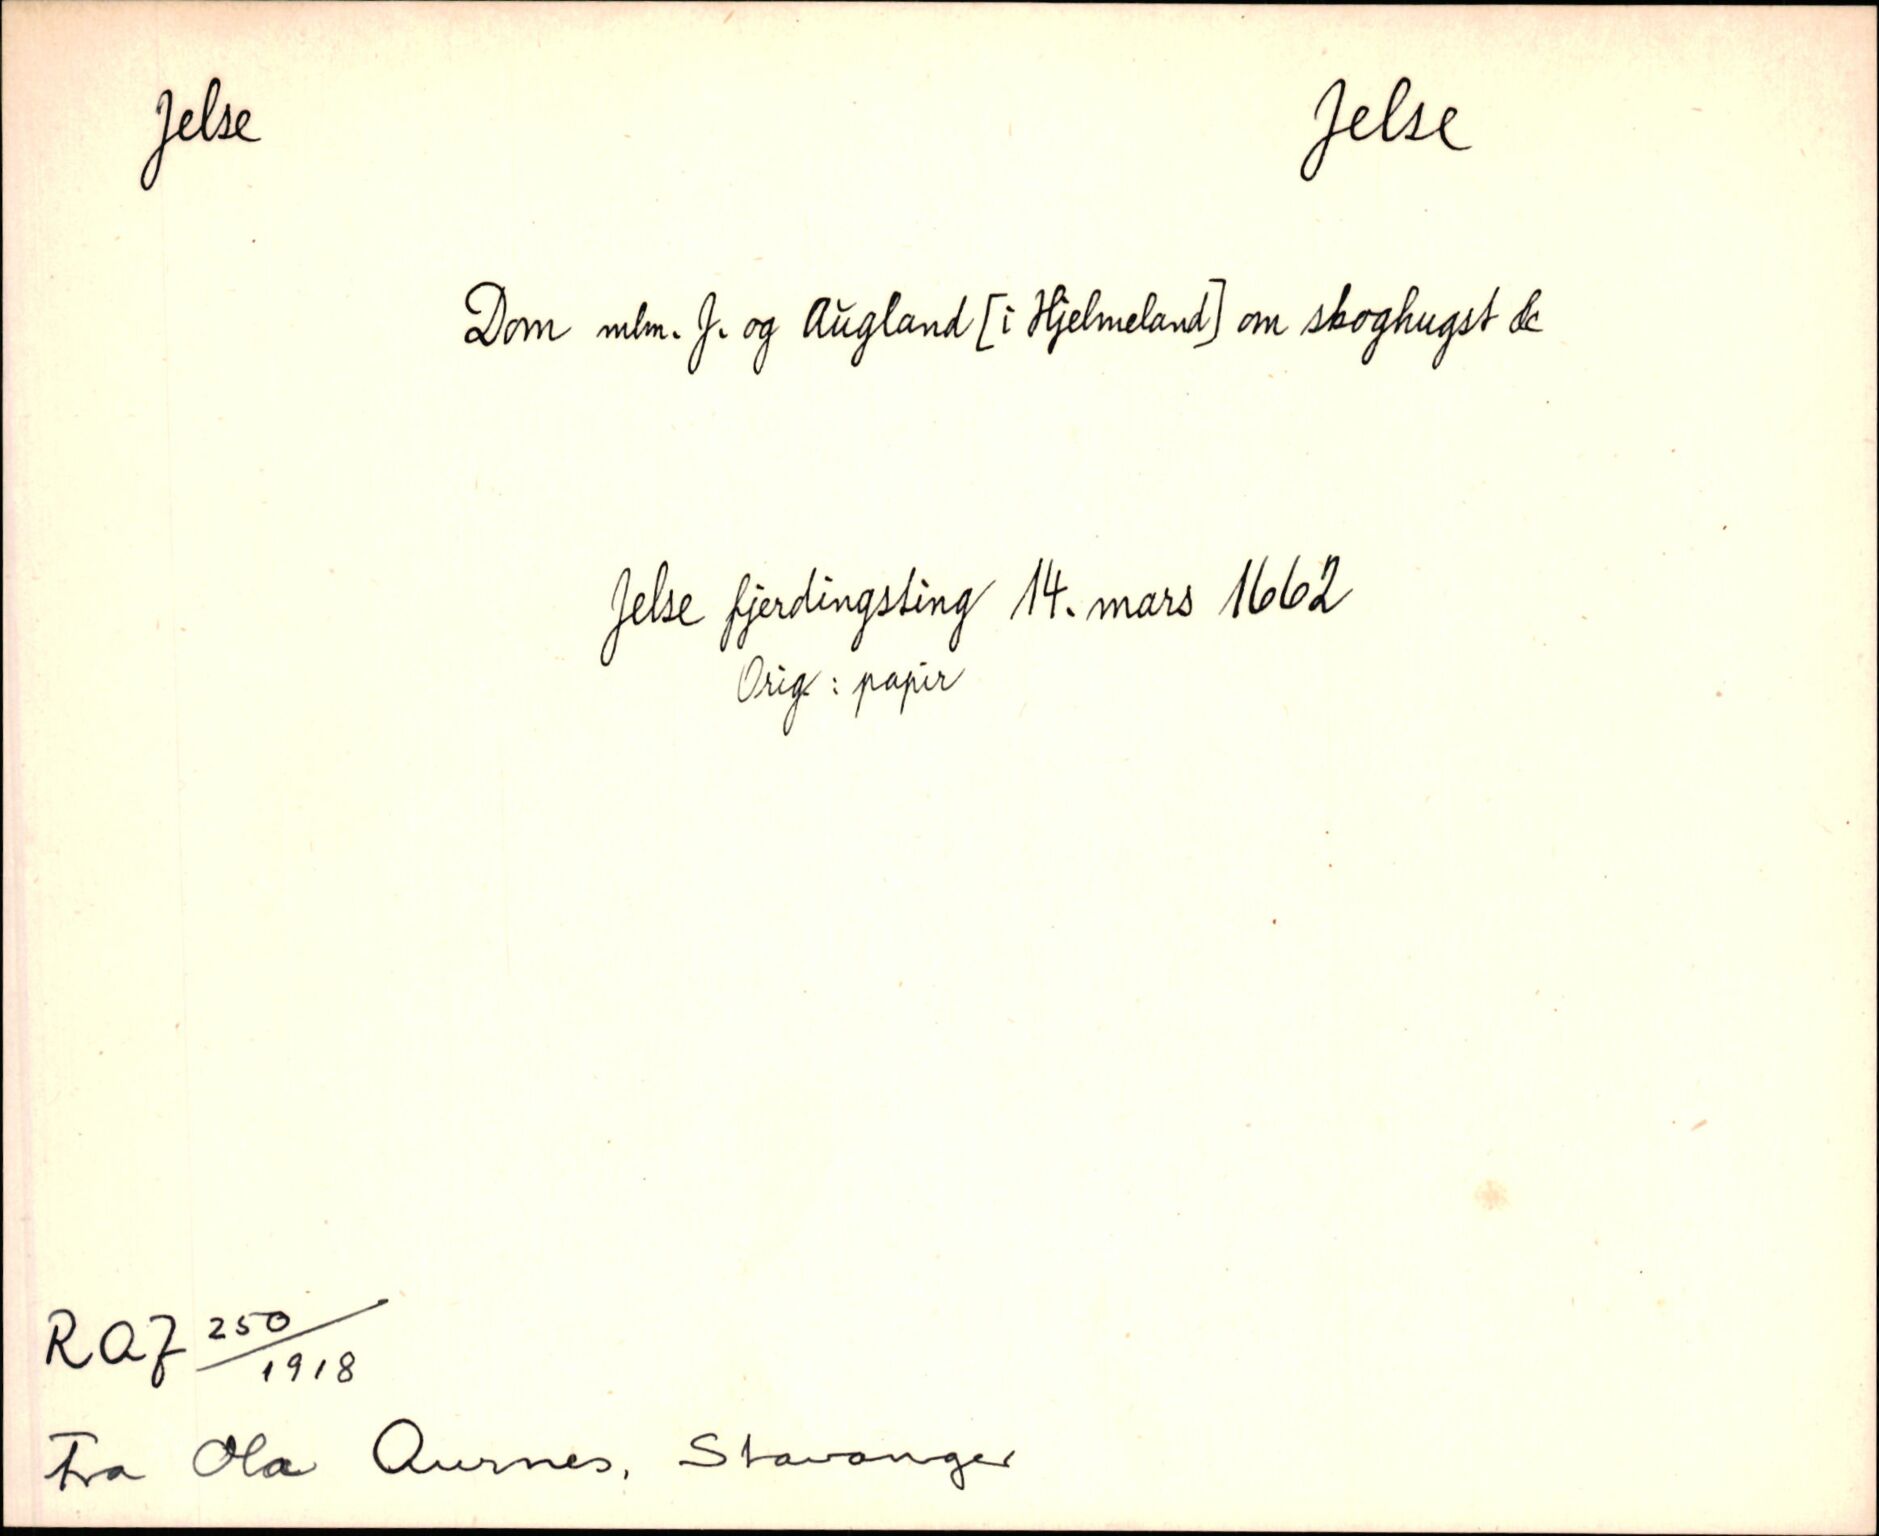 Jelse Jelse
Dom mlm. J. og Augland [i Hjelmeland] om skoghugst &c
Jelse fjerdingsting 14. mars 1662
Orig: papir
RAJ 250/1918
Fra Ola Aurnes, Stavanger